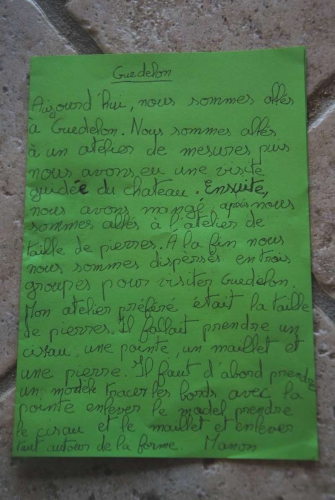 Guedelon
Aujourd'hui, nous sommes allés
à Guedelon. Nous sommes allés
à un atelier de mesures, puis
nous avons eu une visite
guidée du chateau. Ensuite,
nous avons mangé, après nous
sommes allés à l'atelier de
taille de pierres. A la fin nous
nous sommes dispersés en trois
groupes pour visiter Guedelon.
Mon atelier préféré était la taille
de pierres. Il fallait prendre un
cisau, une pointe, un maillet et
une pierre. Il faut d'abord prendre
un modèle tracer les bords avec la
pointe enlever le model prendre
le cisau et le maillet et enlever
tout autour de la forme Manon